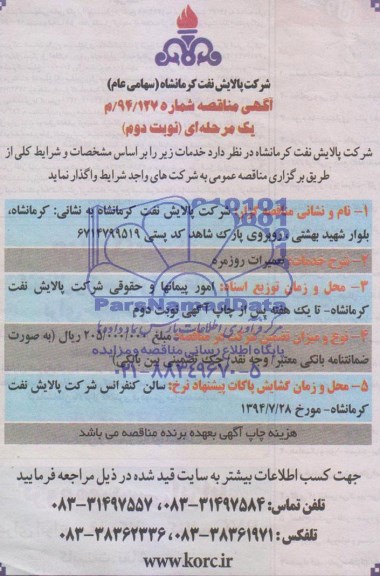 شرکت پالایش نفت کرمانشاه (سهامی عام)
آگهی مناقصه شماره ۹۴/۱۲۷/م
یک مرحله‌ای (نوبت دوم)
شرکت پالایش نفت کرمانشاه در نظر دارد خدمات زیر را بر اساس مشخصات و شرایط کلی از
طریق برگزاری مناقصه عمومی به شرکت های واجد شرایط واگذار نماید
۱- نام و نشانی مناقصه گزار: شرکت پالایش نفت کرمانشاه به نشانی: کرمانشاه،
بلوار شهید بهشتی، روبروی پارک شاهد کد پستی ۶۷۱۴۷۹۹۵۱۹
۲- شرح خدمات: تعمیرات روزمره
۳- محل و زمان توزیع اسناد: امور پیمانها و حقوقی شرکت پالایش نفت
کرمانشاه- تا یک هفته پس از چاپ آگهی نوبت دوم
ParsNamadData
۴- نوع و میزان تضمین شرکت در مناقصه: مبلغ ۲۰۵/۰۰۰/۰۰۰ ریال (به صورت
ضمانتنامه بانکی معتبر/ وجه نقد/ چک تضمینی بین بانکی)
پایگاه اطلاع رسانی مناقصه و مزایده
۰۲۱-۸۸۳۴۹۶۷۰-۵
۵- محل و زمان گشایش پاکات پیشنهاد نرخ: سالن کنفرانس شرکت پالایش نفت
کرمانشاه- مورخ ۱۳۹۴/۷/۲۸
هزینه چاپ آگهی بعهده برنده مناقصه می باشد
جهت کسب اطلاعات بیشتر به سایت قید شده در ذیل مراجعه فرمایید
تلفن تماس: ۳۱۴۹۷۵۸۴-۰۸۳، ۳۱۴۹۷۵۵۷-۰۸۳
تلفکس: ۳۸۳۶۱۹۷۱-۰۸۳، ۳۸۳۶۲۳۳۶-۰۸۳
www.korc.ir